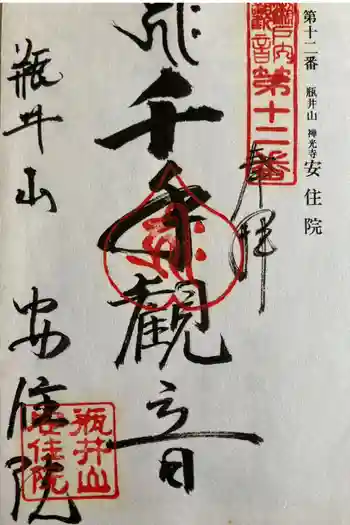 第十二番 瓶井山 禅光寺 安住院
瀬戸内観音第十二番
奉拝
千手観音
瓶井山
安住院
瓶井山
安住院